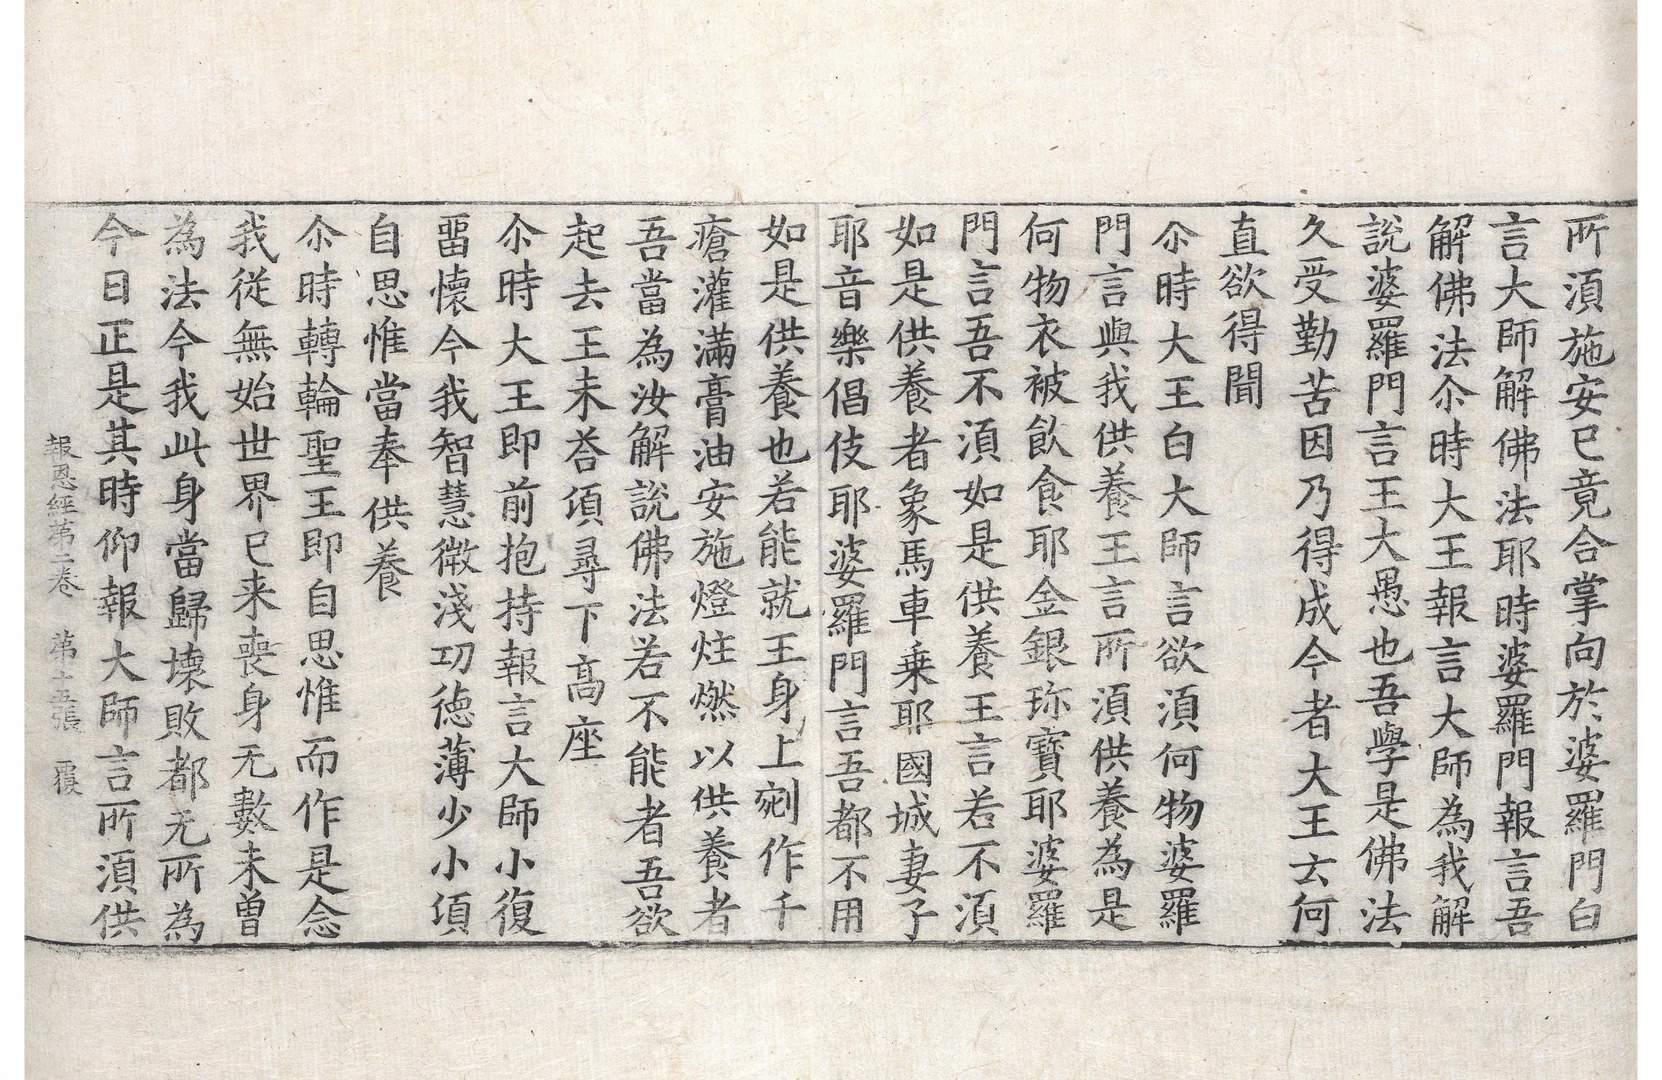 所湏施安已竟合掌向於婆羅門白
言大師解佛法耶時婆羅門報言吾
解佛法尒時大王報言大師為我解
說婆羅門言王大愚也吾學是佛法
久受勤苦因乃得成今者大王云何
直欲得聞
尒時大王白大師言欲湏何物婆羅
門言與我供養王言所湏供養為是
何物衣被飲食耶金銀珎寶耶婆羅
門言吾不湏如是供養王言若不湏
如是供養者象馬車乗耶國城妻子
耶音樂倡伎耶婆羅門言吾都不用
如是供養也若能就王身上剜作千
瘡灌滿膏油安施燈炷燃以供養者
吾當為汝解說佛法若不能者吾欲
起去王未荅頃尋下高座
尒時大王即前抱持報言大師小復
畱懷今我智慧微淺功徳薄少小項
自思惟當奉供養
尒時轉輪聖王即自思惟而作是念
我從無始世界已来喪身无數未曽
為法今我此身當歸壊敗都无所為
今日正是其時仰報大師言所湏供
報恩經第二卷　第十五張　覆